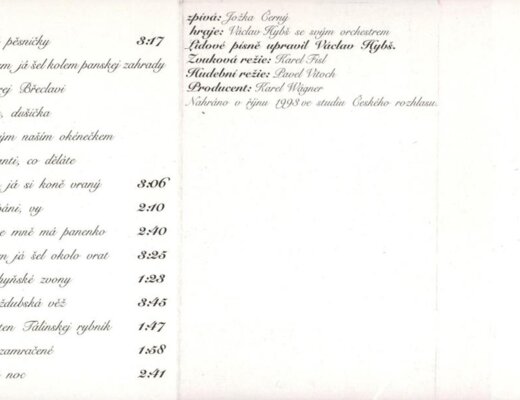 pěsničky 3:17
m já šel kolem panskej zahrady
rej Břeclavi
, dušička
ým naším okénečkem
anti, co děláte
já si koně vraný 3:06
páni, vy 2:10
e mně má panenko 2:40
m já šel okolo vrat 3:25
hyňské zvony 1:23
ždubská věž 3:45
ten Tálinskej rybník 1:47
zamračené 1:58
noc 2:41
zpívá: Jožka Černý
hraje: Václav Hybš se svým orchestrem
Lidové písně upravil Václav Hybš.
Zvuková režie: Karel Fisl
Hudební režie: Pavel Vitoch
Producent: Karel Wágner
Nahráno v říjnu 1993 ve studiu Českého rozhlasu.